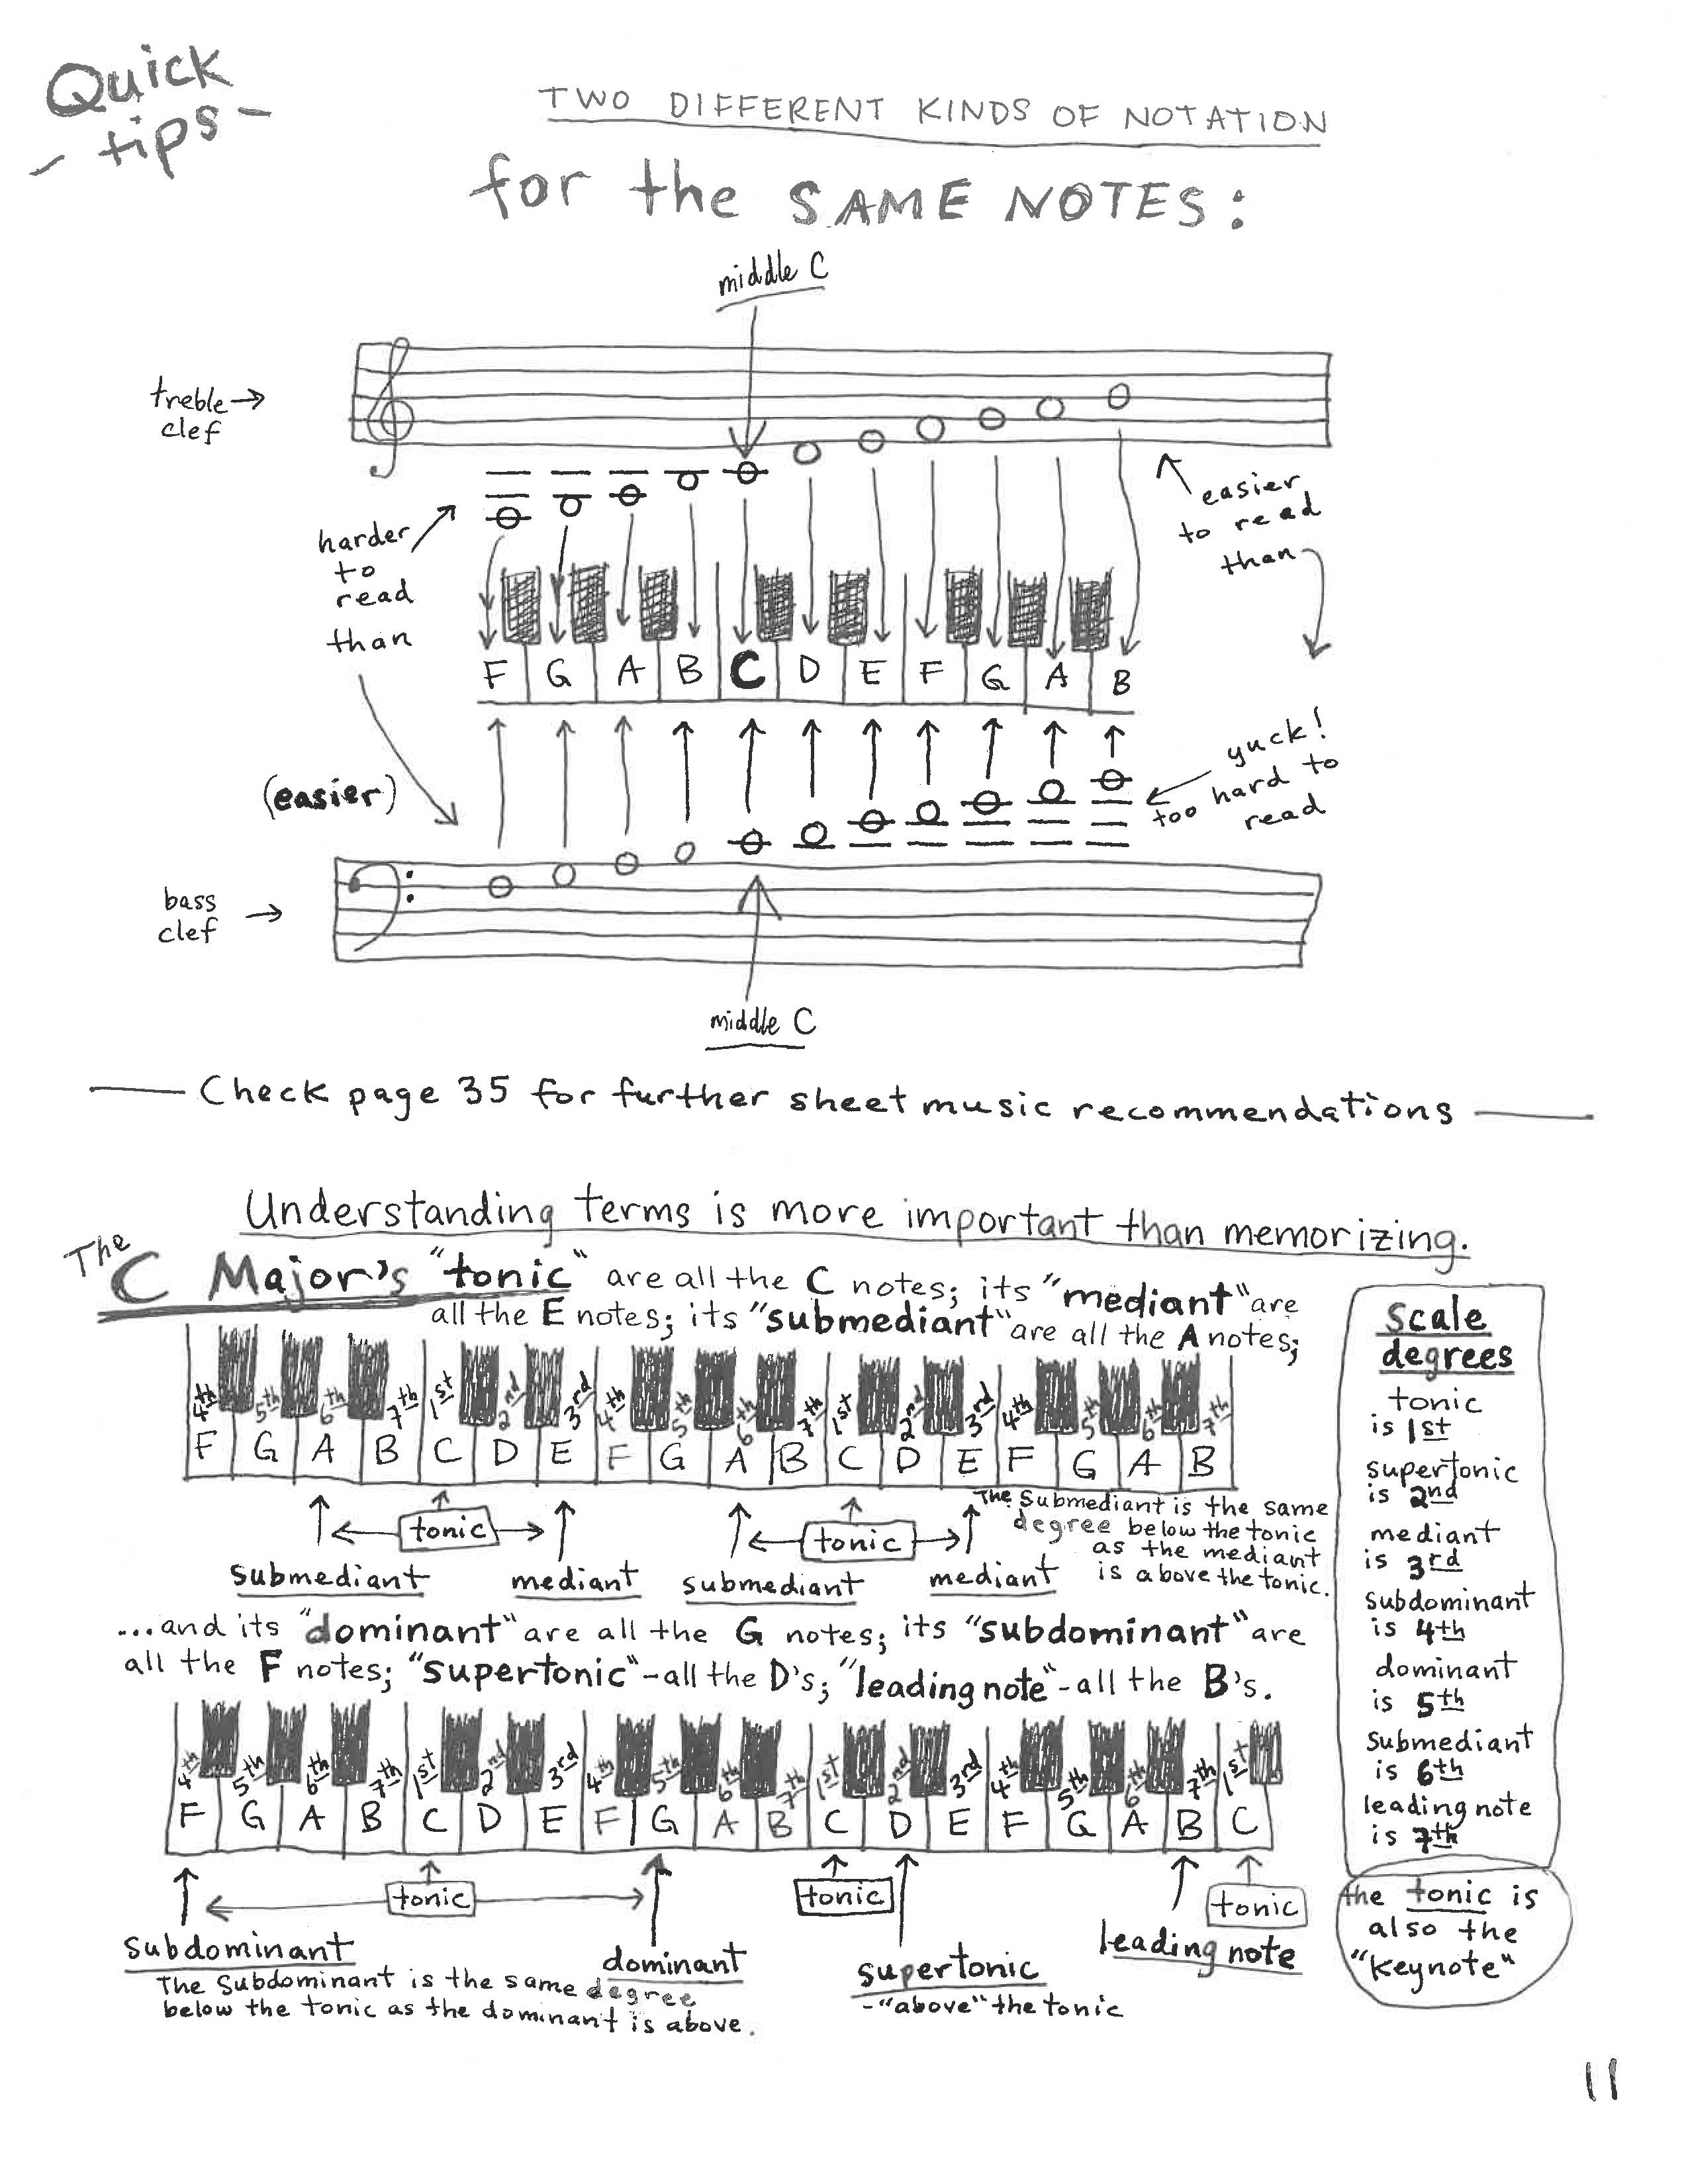 Quick
- tips -
TWO DIFFERENT KINDS OF NOTATION
for the SAME NOTES:
middle C
treble →
clef
harder
to
read
than
easier
to read
than
F G A B C D E F G A B
(easier)
yuck!
too hard to
read
bass
clef →
middle C
Check page 35 for further sheet music recommendations
Understanding terms is more important than memorizing.
The C Major's "tonic" are all the C notes; its "mediant" are
all the E notes; its "submediant" are all the A notes;
4th 5th 6th 7th 1st 2nd 3rd 4th 5th 6th 7th 1st 2nd 3rd 4th 5th 6th 7th
F G A B C D E F G A B C D E F G A B
tonic tonic
submediant mediant submediant mediant
The Submediant is the same
degree below the tonic
as the mediant
is above the tonic.
...and its "dominant" are all the G notes; its "subdominant" are
all the F notes; "supertonic" - all the D's; "leading note" - all the B's.
4th 5th 6th 7th 1st 2nd 3rd 4th 5th 6th 7th 1st 2nd 3rd 4th 5th 6th 7th 1st
F G A B C D E F G A B C D E F G A B C
tonic tonic tonic
subdominant dominant supertonic leading note
The Subdominant is the same degree
below the tonic as the dominant is above.
-"above" the tonic
Scale
degrees
tonic
is 1st
supertonic
is 2nd
mediant
is 3rd
subdominant
is 4th
dominant
is 5th
submediant
is 6th
leading note
is 7th
the tonic is
also the
"keynote"
11